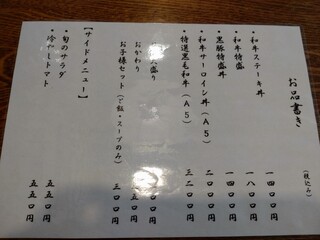 お品書き （税込み）
・和牛ステーキ丼 一四〇〇円
・和牛特盛 一八〇〇円
・黒豚特盛丼 一四〇〇円
・和牛サーロイン丼（A5） 二〇〇〇円
・特選黒毛和牛（A5） 三二〇〇円
盛り
おかわり 一〇〇円
お子様セット（ご飯・スープのみ） 三〇〇円
【サイドメニュー】
・旬のサラダ 五五〇円
・冷やしトマト 五五〇円